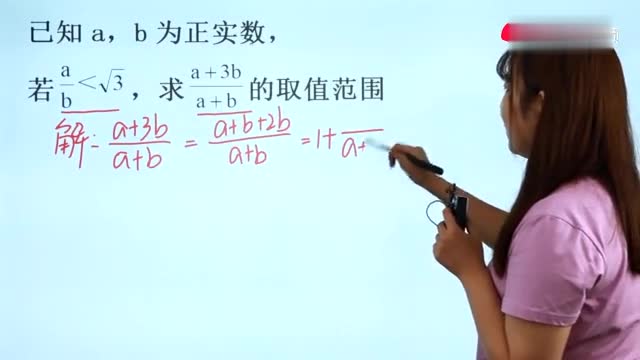 已知 a，b 为正实数，
若 a/b < √3 ，求 (a + 3b)/(a + b) 的取值范围
解: (a+3b)/(a+b) = (a+b+2b)/(a+b) = 1+ /(a+